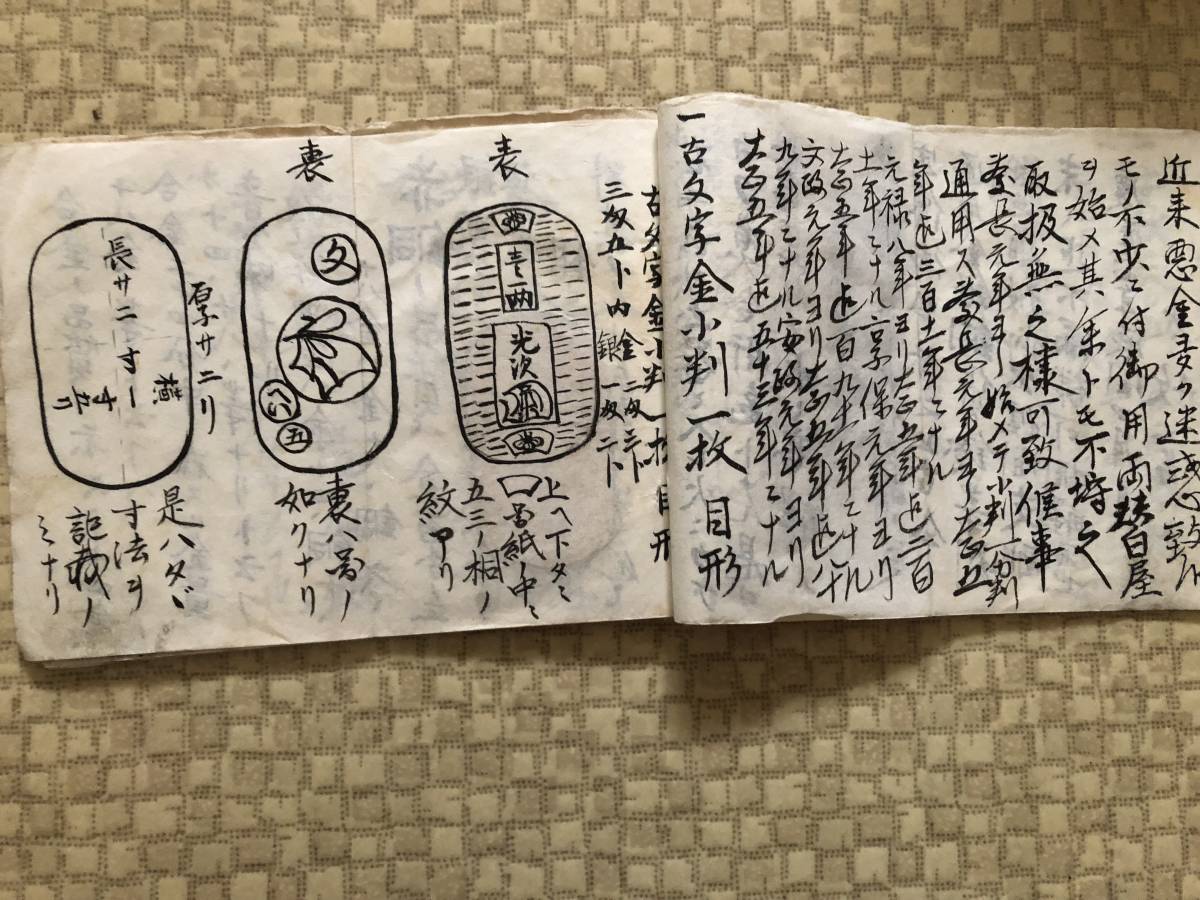 近来悪金多ク迷惑心致ル
モノ不少ニ付御用両替白屋
ヲ始メ其余トモ不埒之
取扱無之様可致候事
慶長元年ヨリ始メテ小判一分判
通用ス慶長元年ヨリ大正五
年迄三百十一年ニナル
元禄八年ヨリ大正五年迄二百
十一年ニナル享保元年ヨリ
大正五年迄百九十一年ニナル
文政元年ヨリ大正五年迄八十
九年ニナル安政元年ヨリ
大正五年迄五十三年ニナル
一古文字金小判一枚 目形
古文字金小判一枚 目形
三匁五卜内 金二匁三卜
銀一匁二卜
表
壱両
光次
上ヘ下タニ
図ノ紙ノ中ニ
五三ノ桐ノ
紋アリ
裏
文
八
五
裏ハ図ノ
如クナリ
厚サ二リ
長サ二寸一
横一寸五リ
是ハタヾ
寸法ヲ
記載ノ
ミナリ